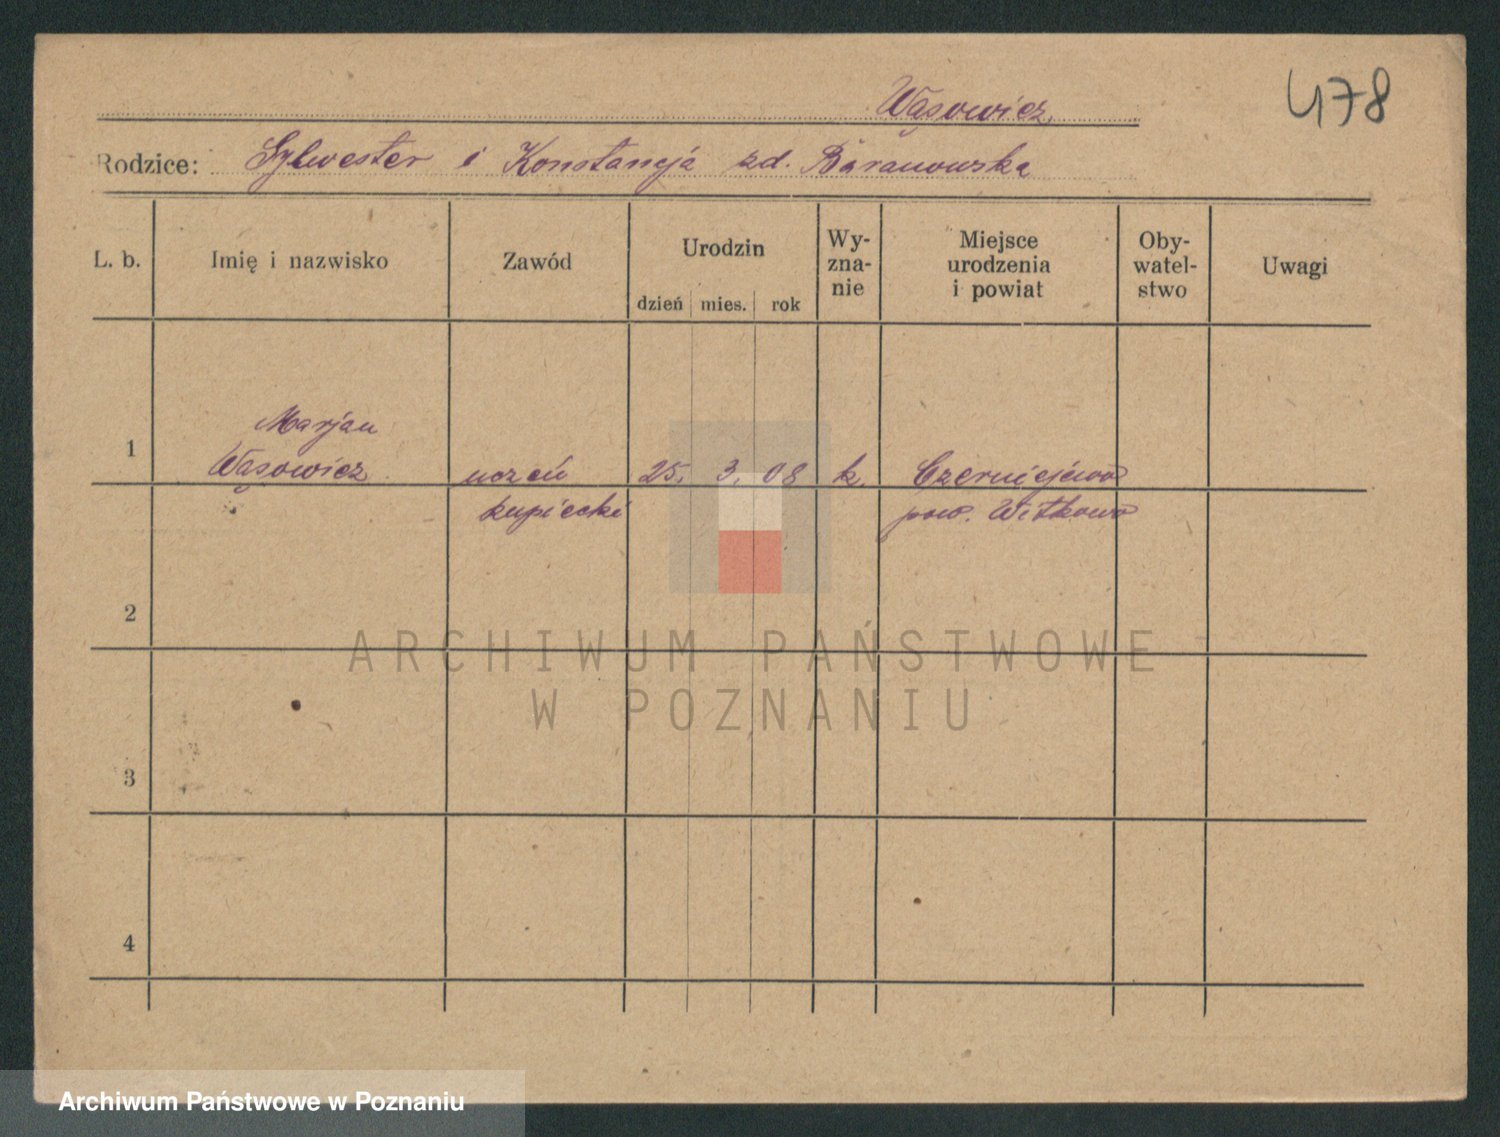 478
Wąsowicz
Rodzice: Sylwester i Konstancja zd. Baranowska
L. b. Imię i nazwisko Zawód Urodzin dzień mies. rok Wy-
zna-
nie Miejsce
urodzenia
i powiat Oby-
watel-
stwo Uwagi
Marjan
1 Wąsowicz uczeń 25. 3. 08 k. Czerniejewo
kupiecki pow. Witkowo
2
3
4
ARCHIWUM PAŃSTWOWE
W POZNANIU
Archiwum Państwowe w Poznaniu